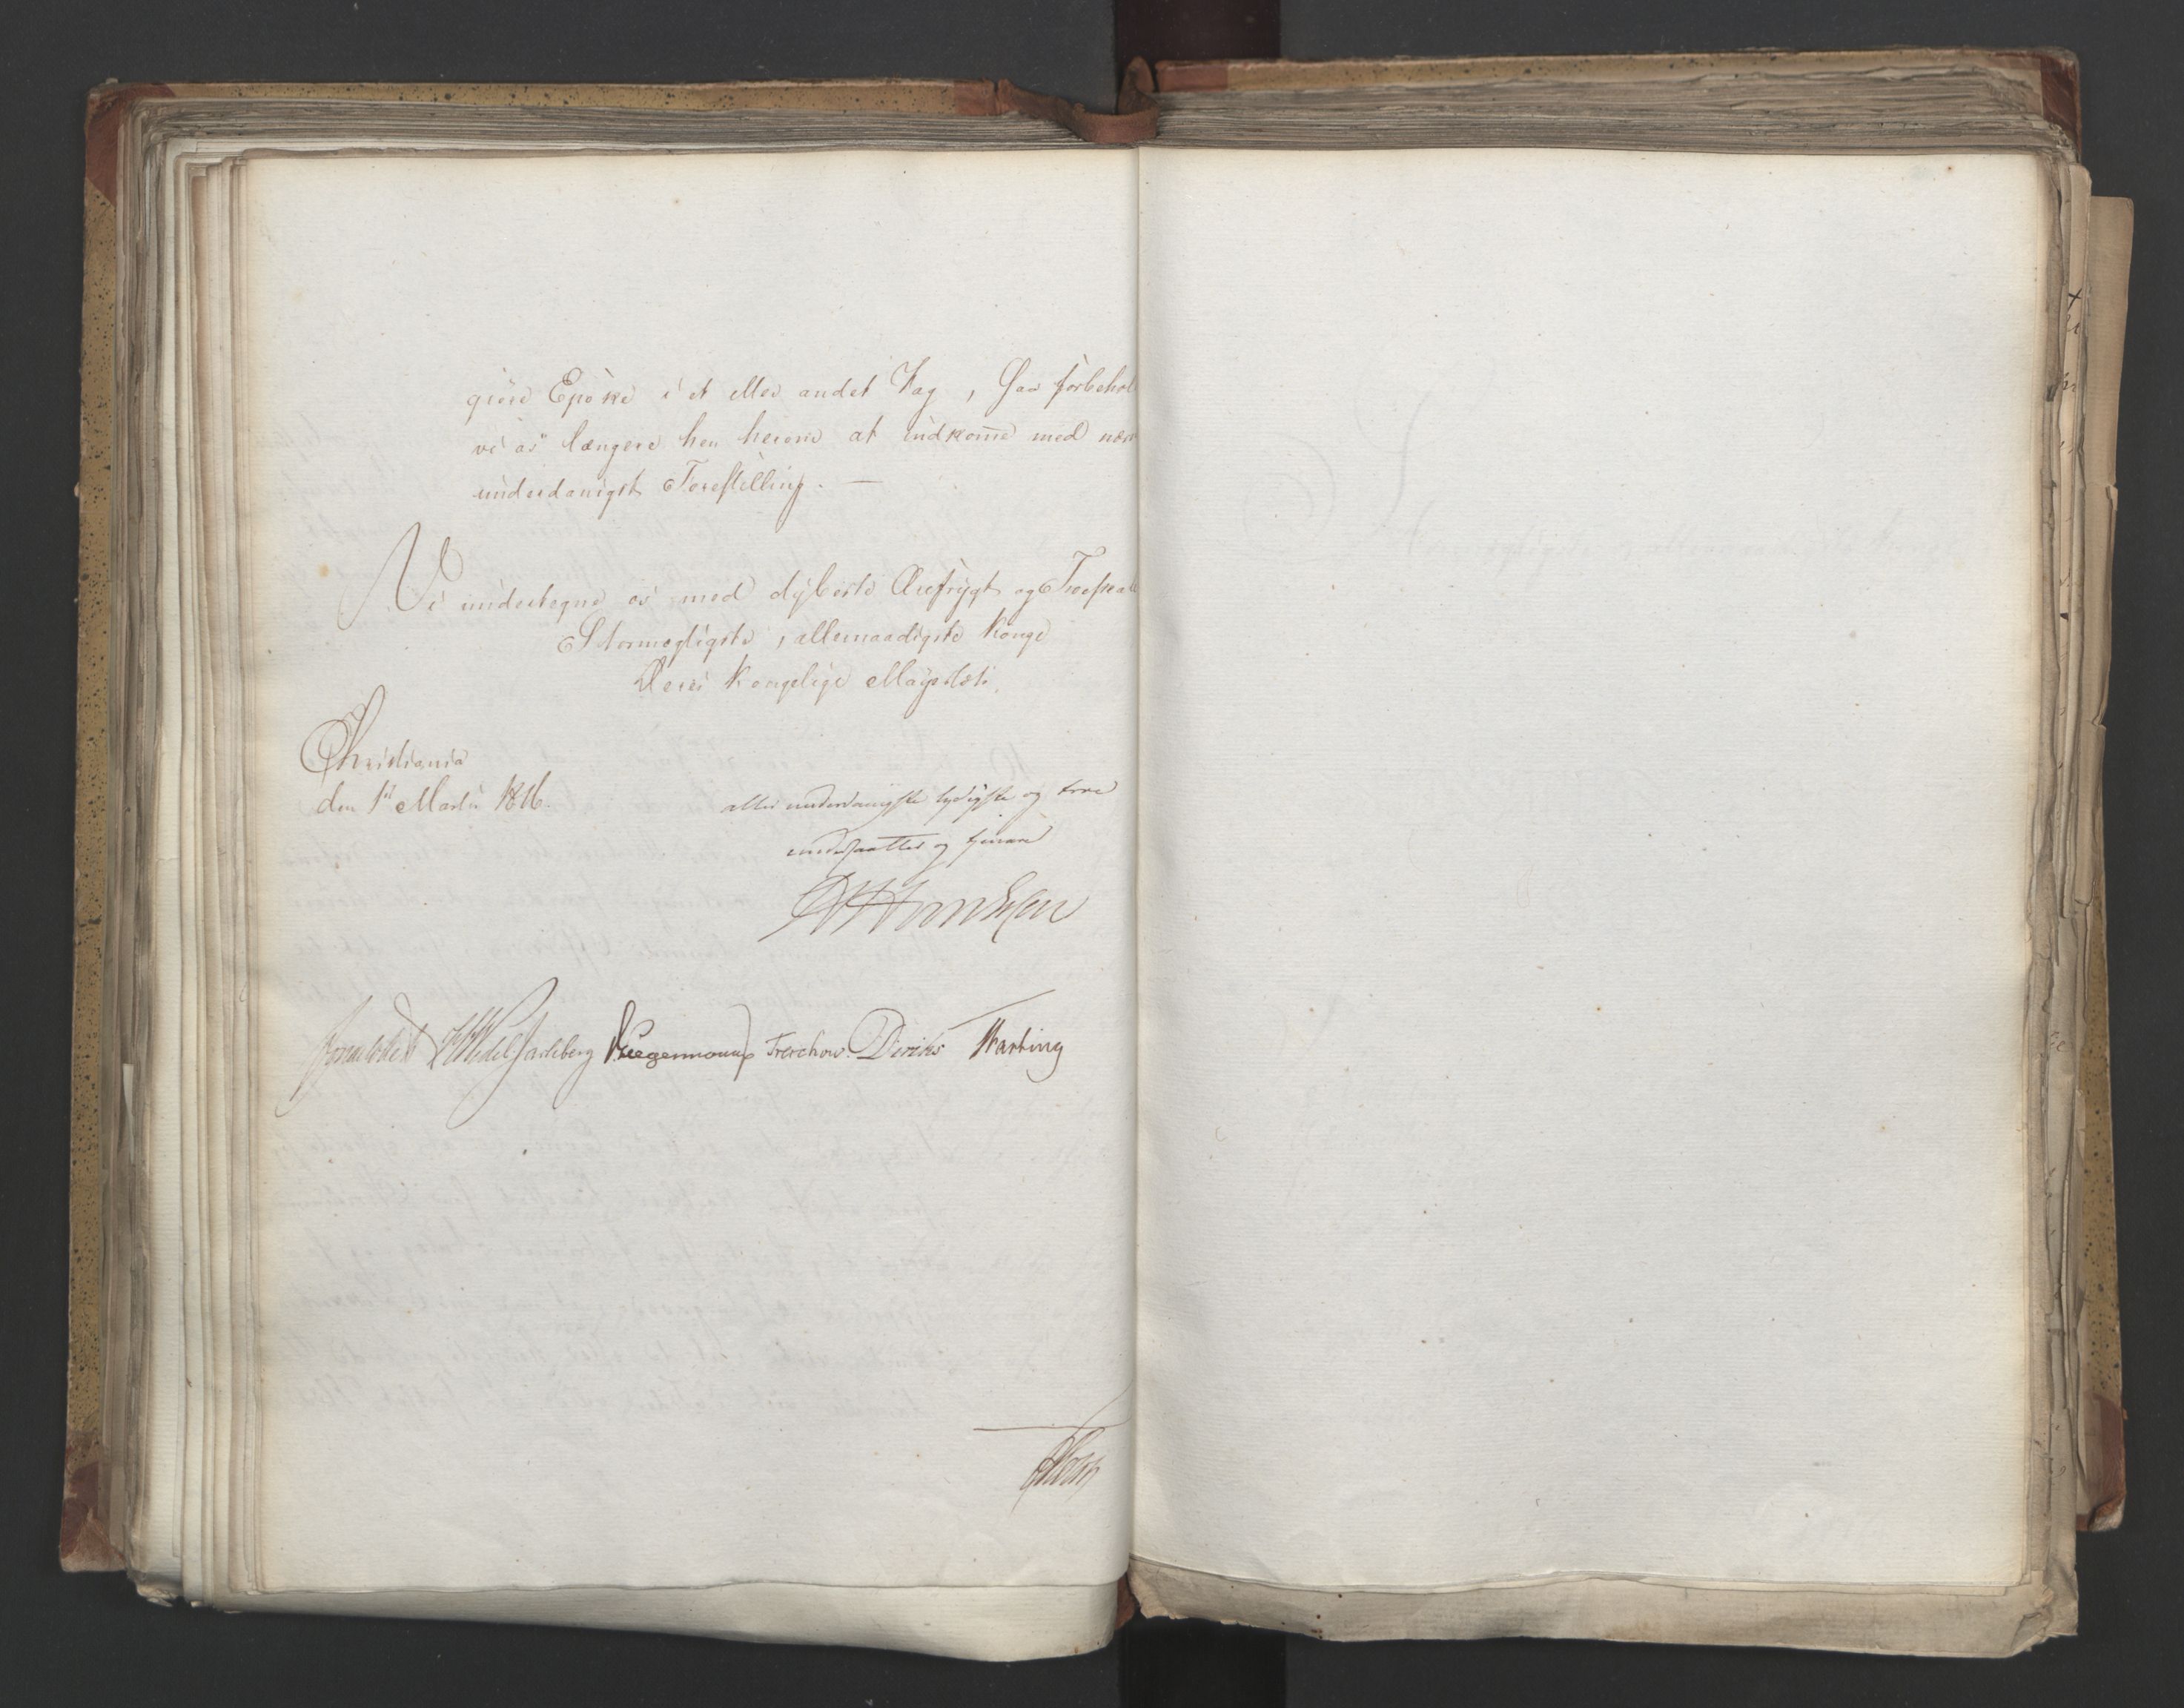 giöre Epoke i et eller andet Fag, saa forbehol
vi os længere hen herom at indkom̄e med nær
underdanigst Forestilling. —
Vi undertegne os med dybeste Ærefrygt og Troeska
Stormægtigste, allernaadigste Konge
Deres Kongelige Majestæts
Christiania
den 1st Martii 1816.
aller underdanigste lydigste og troe
undersaatter og tjenere
Sommerhielm Wedel Jarlsberg Krieger Treschow. Diriks Hartvig